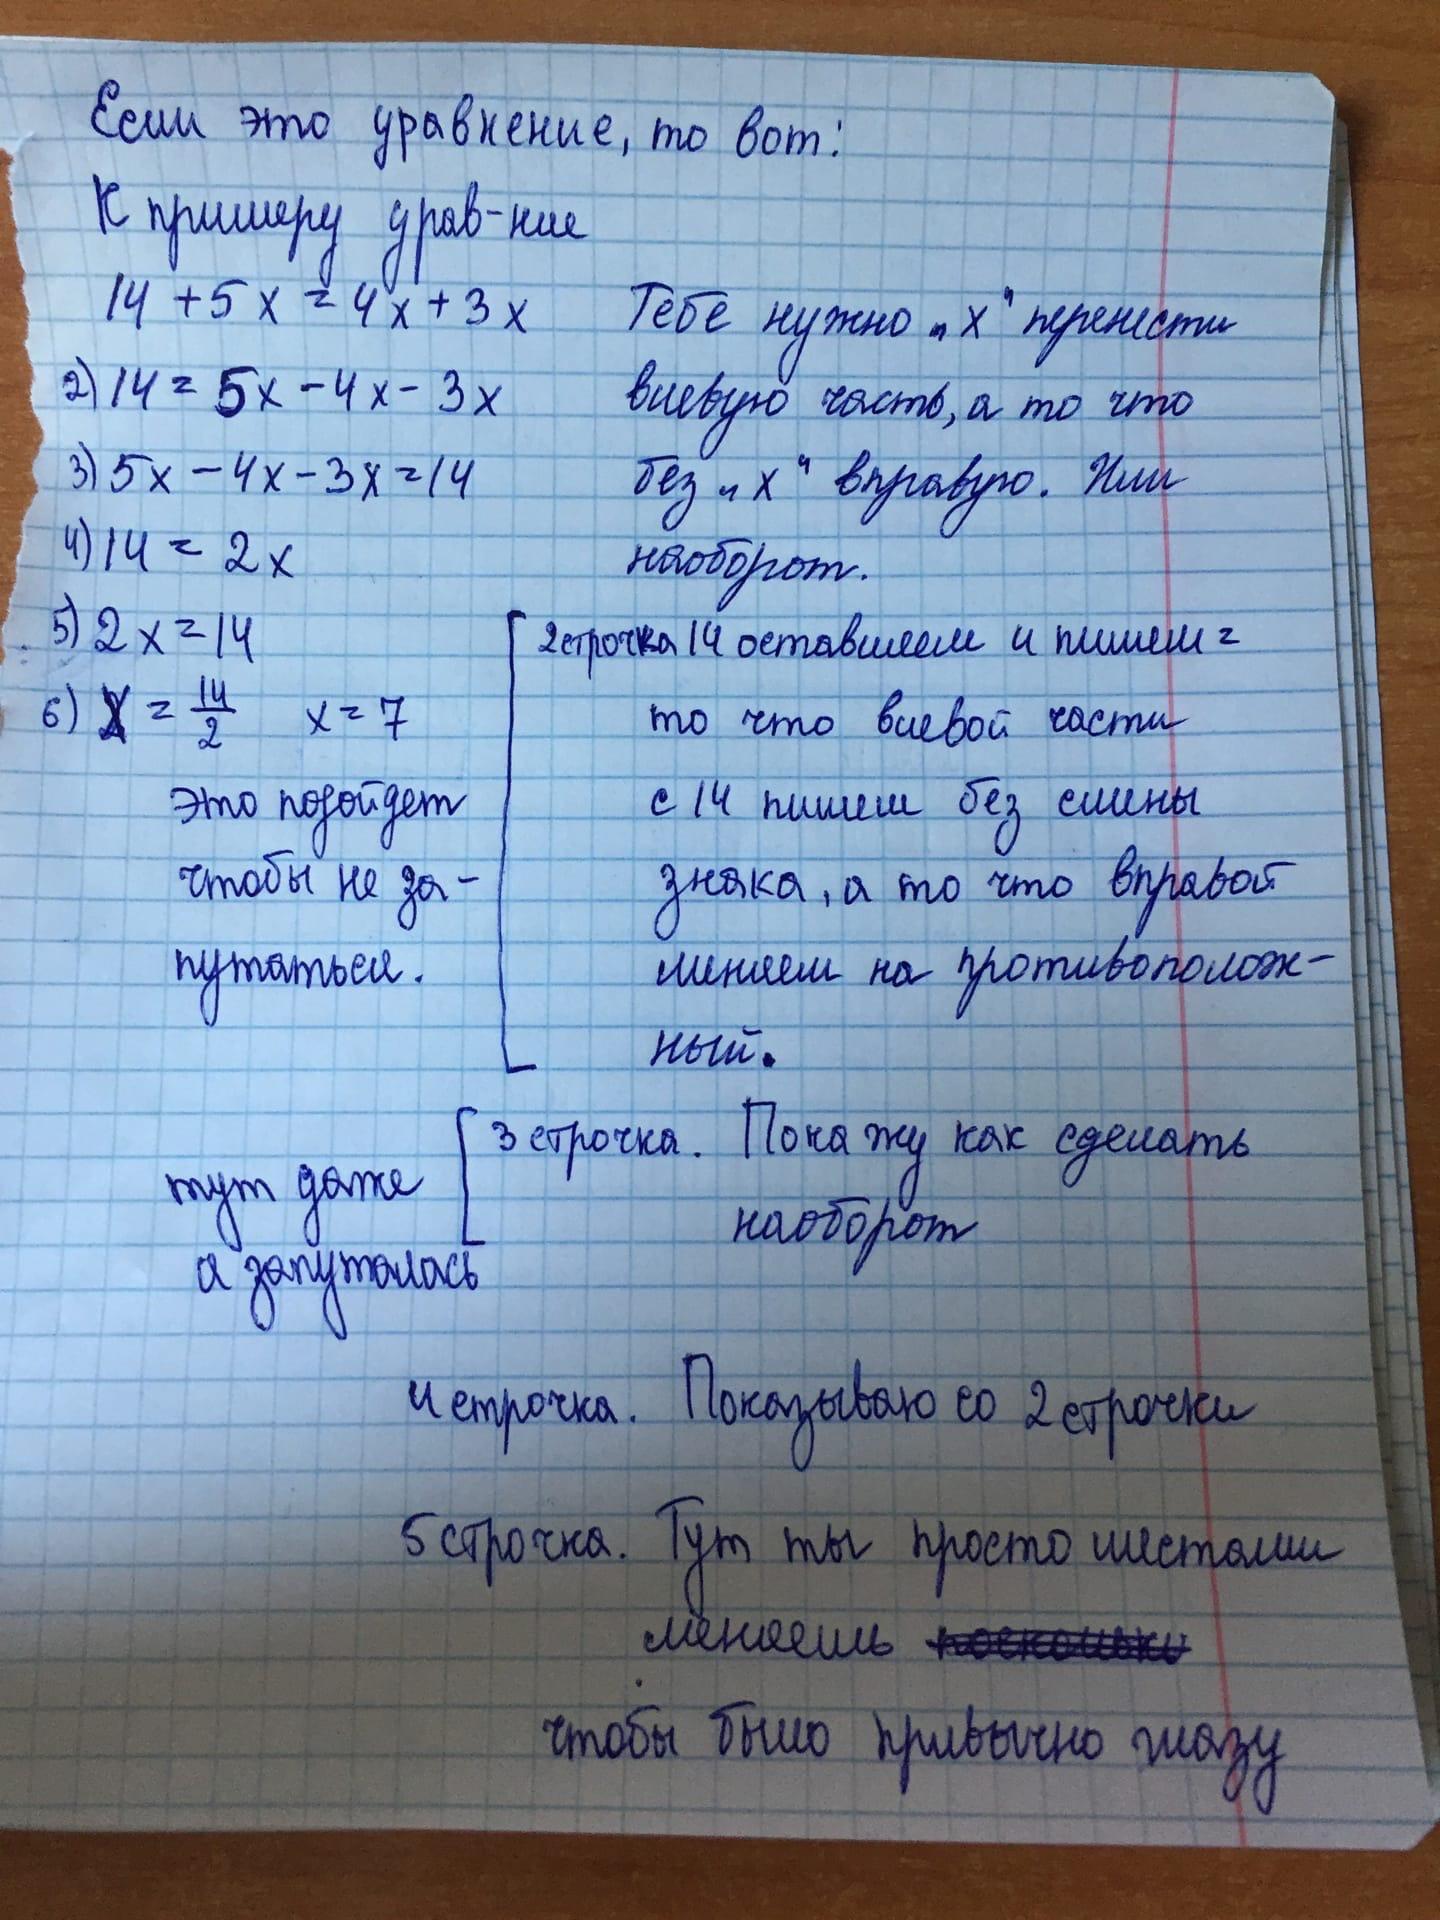 Если это уравнение, то вот:
К примеру урав-ние
14 + 5x = 4x + 3x
2) 14 = 5x - 4x - 3x
3) 5x - 4x - 3x = 14
4) 14 = 2x
5) 2x = 14
6) x = 14/2 x = 7
это подойдет
чтобы не за-
путаться.
Тебе нужно „x" перенести
влевую часть, а то что
без „x" вправую. Или
наоборот.
2 строчка 14 оставляем и пишем =
то что влевой части
с 14 пишем без смены
знака, а то что вправой
меняем на противополож-
ный.
3 строчка. Покажу как сделать
наоборот
тут даже
я запуталась
4 строчка. Показываю со 2 строчки
5 строчка. Тут ты просто местами
меняешь поскольку
чтобы было привычно глазу